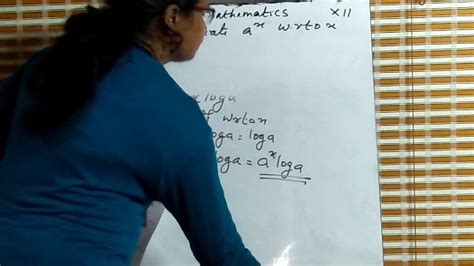 Mathematics XII
a^x w.r.to x
log a
w.r.to x
log a = log a
log a = a^x log a